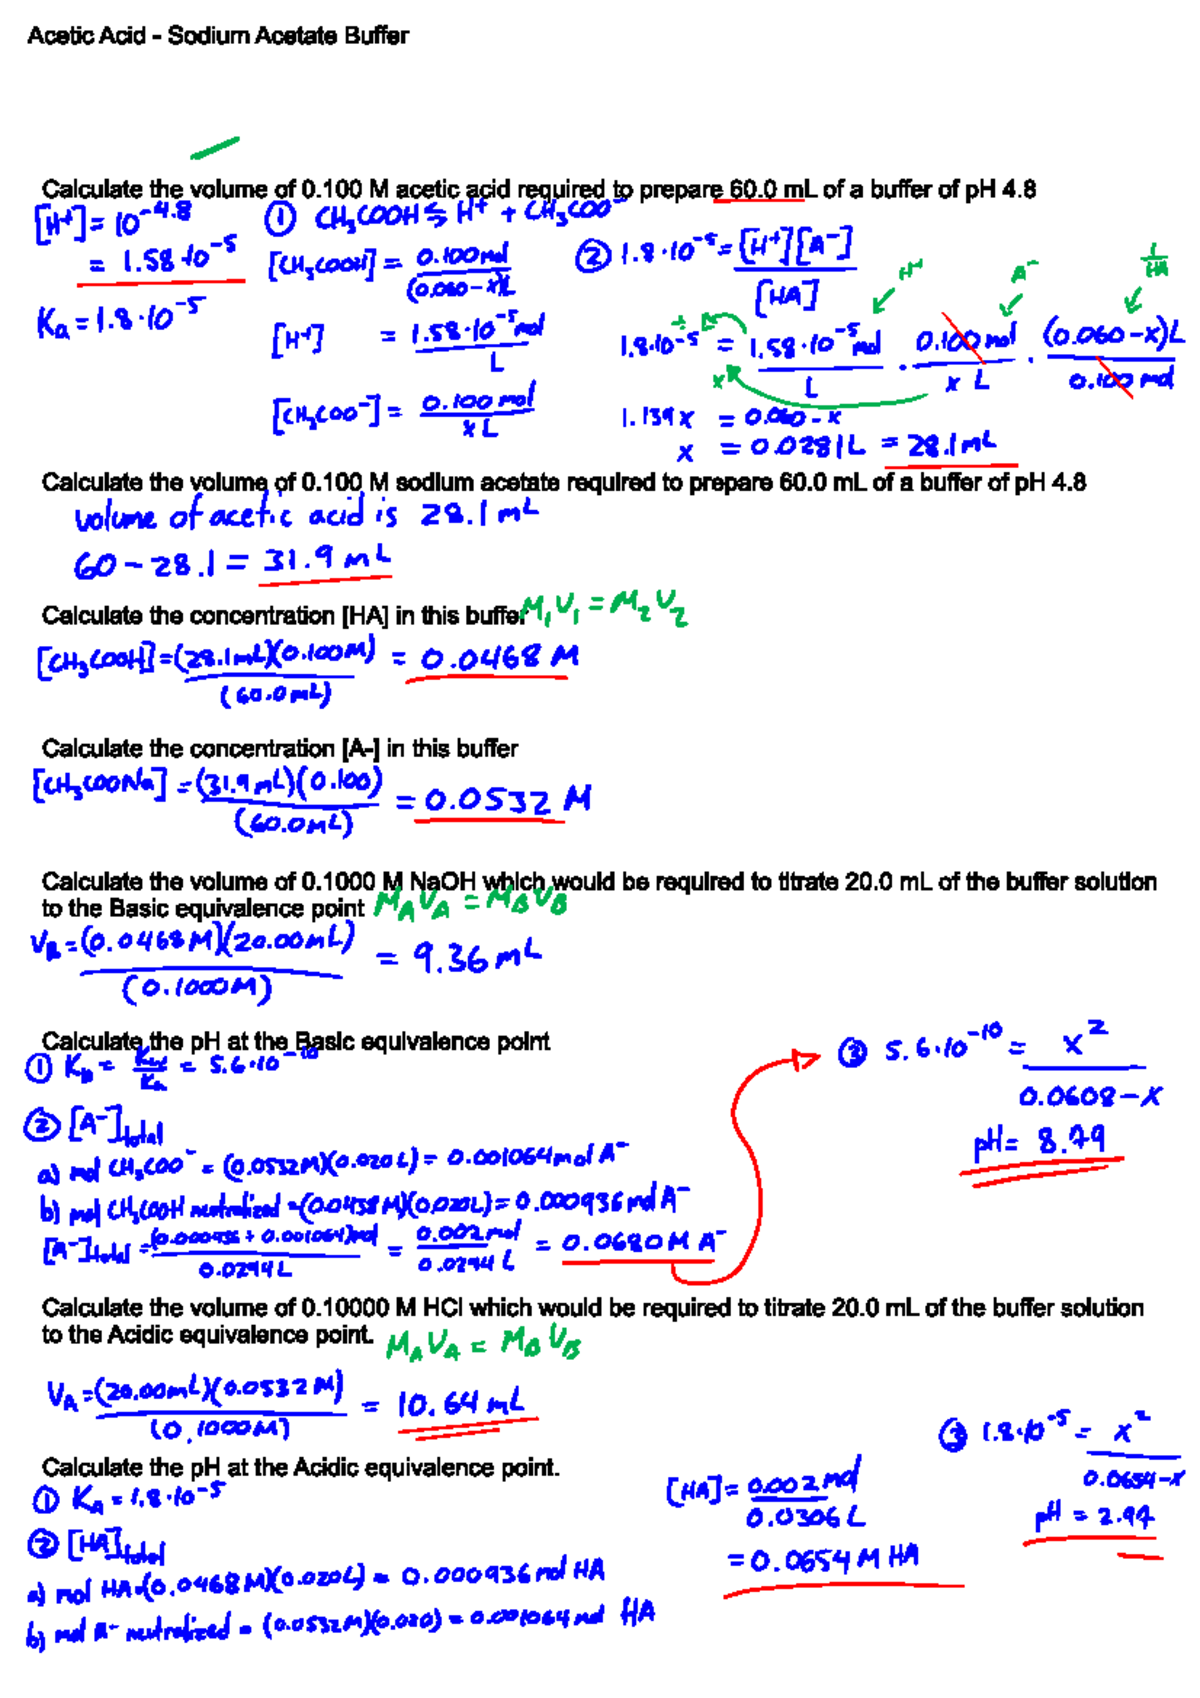 Acetic Acid - Sodium Acetate Buffer
Calculate the volume of 0.100 M acetic acid required to prepare 60.0 mL of a buffer of pH 4.8
[H⁺] = 10^-4.8
= 1.58·10^-5
Ka = 1.8·10^-5
① CH₃COOH ⇆ H⁺ + CH₃COO⁻
[CH₃COOH] = 0.100 mol / (0.060 - x)L
[H⁺] = 1.58·10^-5 mol / L
[CH₃COO⁻] = 0.100 mol / x L
② 1.8·10^-5 = [H⁺][A⁻] / [HA]
H⁺ A⁻ 1/HA
÷
1.8·10^-5 = 1.58·10^-5 mol / L · 0.100 mol / x L · (0.060 - x)L / 0.100 mol
x
1.139x = 0.060 - x
x = 0.0281L = 28.1mL
Calculate the volume of 0.100 M sodium acetate required to prepare 60.0 mL of a buffer of pH 4.8
volume of acetic acid is 28.1 mL
60 - 28.1 = 31.9 mL
Calculate the concentration [HA] in this buffer M₁V₁ = M₂V₂
[CH₃COOH] = (28.1mL)(0.100M) / (60.0mL) = 0.0468 M
Calculate the concentration [A-] in this buffer
[CH₃COONa] = (31.9mL)(0.100) / (60.0mL) = 0.0532 M
Calculate the volume of 0.1000 M NaOH which would be required to titrate 20.0 mL of the buffer solution
to the Basic equivalence point MAVA = MBVB
VB = (0.0468M)(20.00mL) / (0.1000M) = 9.36 mL
Calculate the pH at the Basic equivalence point
① Kb = Kw/Ka = 5.6·10^-10
② [A⁻]total
a) mol CH₃COO⁻ = (0.0532M)(0.020L) = 0.001064mol A⁻
b) mol CH₃COOH neutralized = (0.0438M)(0.020L) = 0.000936mol A⁻
[A⁻]total = (0.000936 + 0.001064)mol / 0.0294L = 0.002mol / 0.0294 L = 0.0680 M A⁻
③ 5.6·10^-10 = x² / 0.0608 - x
pH = 8.79
Calculate the volume of 0.10000 M HCl which would be required to titrate 20.0 mL of the buffer solution
to the Acidic equivalence point. MAVA = MBVB
VA = (20.00mL)(0.0532M) / (0.1000M) = 10.64 mL
Calculate the pH at the Acidic equivalence point.
① KA = 1.8·10^-5
② [HA]total
a) mol HA = (0.0468M)(0.020L) = 0.000936 mol HA
b) mol A⁻ neutralized = (0.0532M)(0.020) = 0.001064 mol HA
[HA] = 0.002 mol / 0.0306 L
= 0.0654 M HA
③ 1.8·10^-5 = x² / 0.0654-x
pH = 2.94